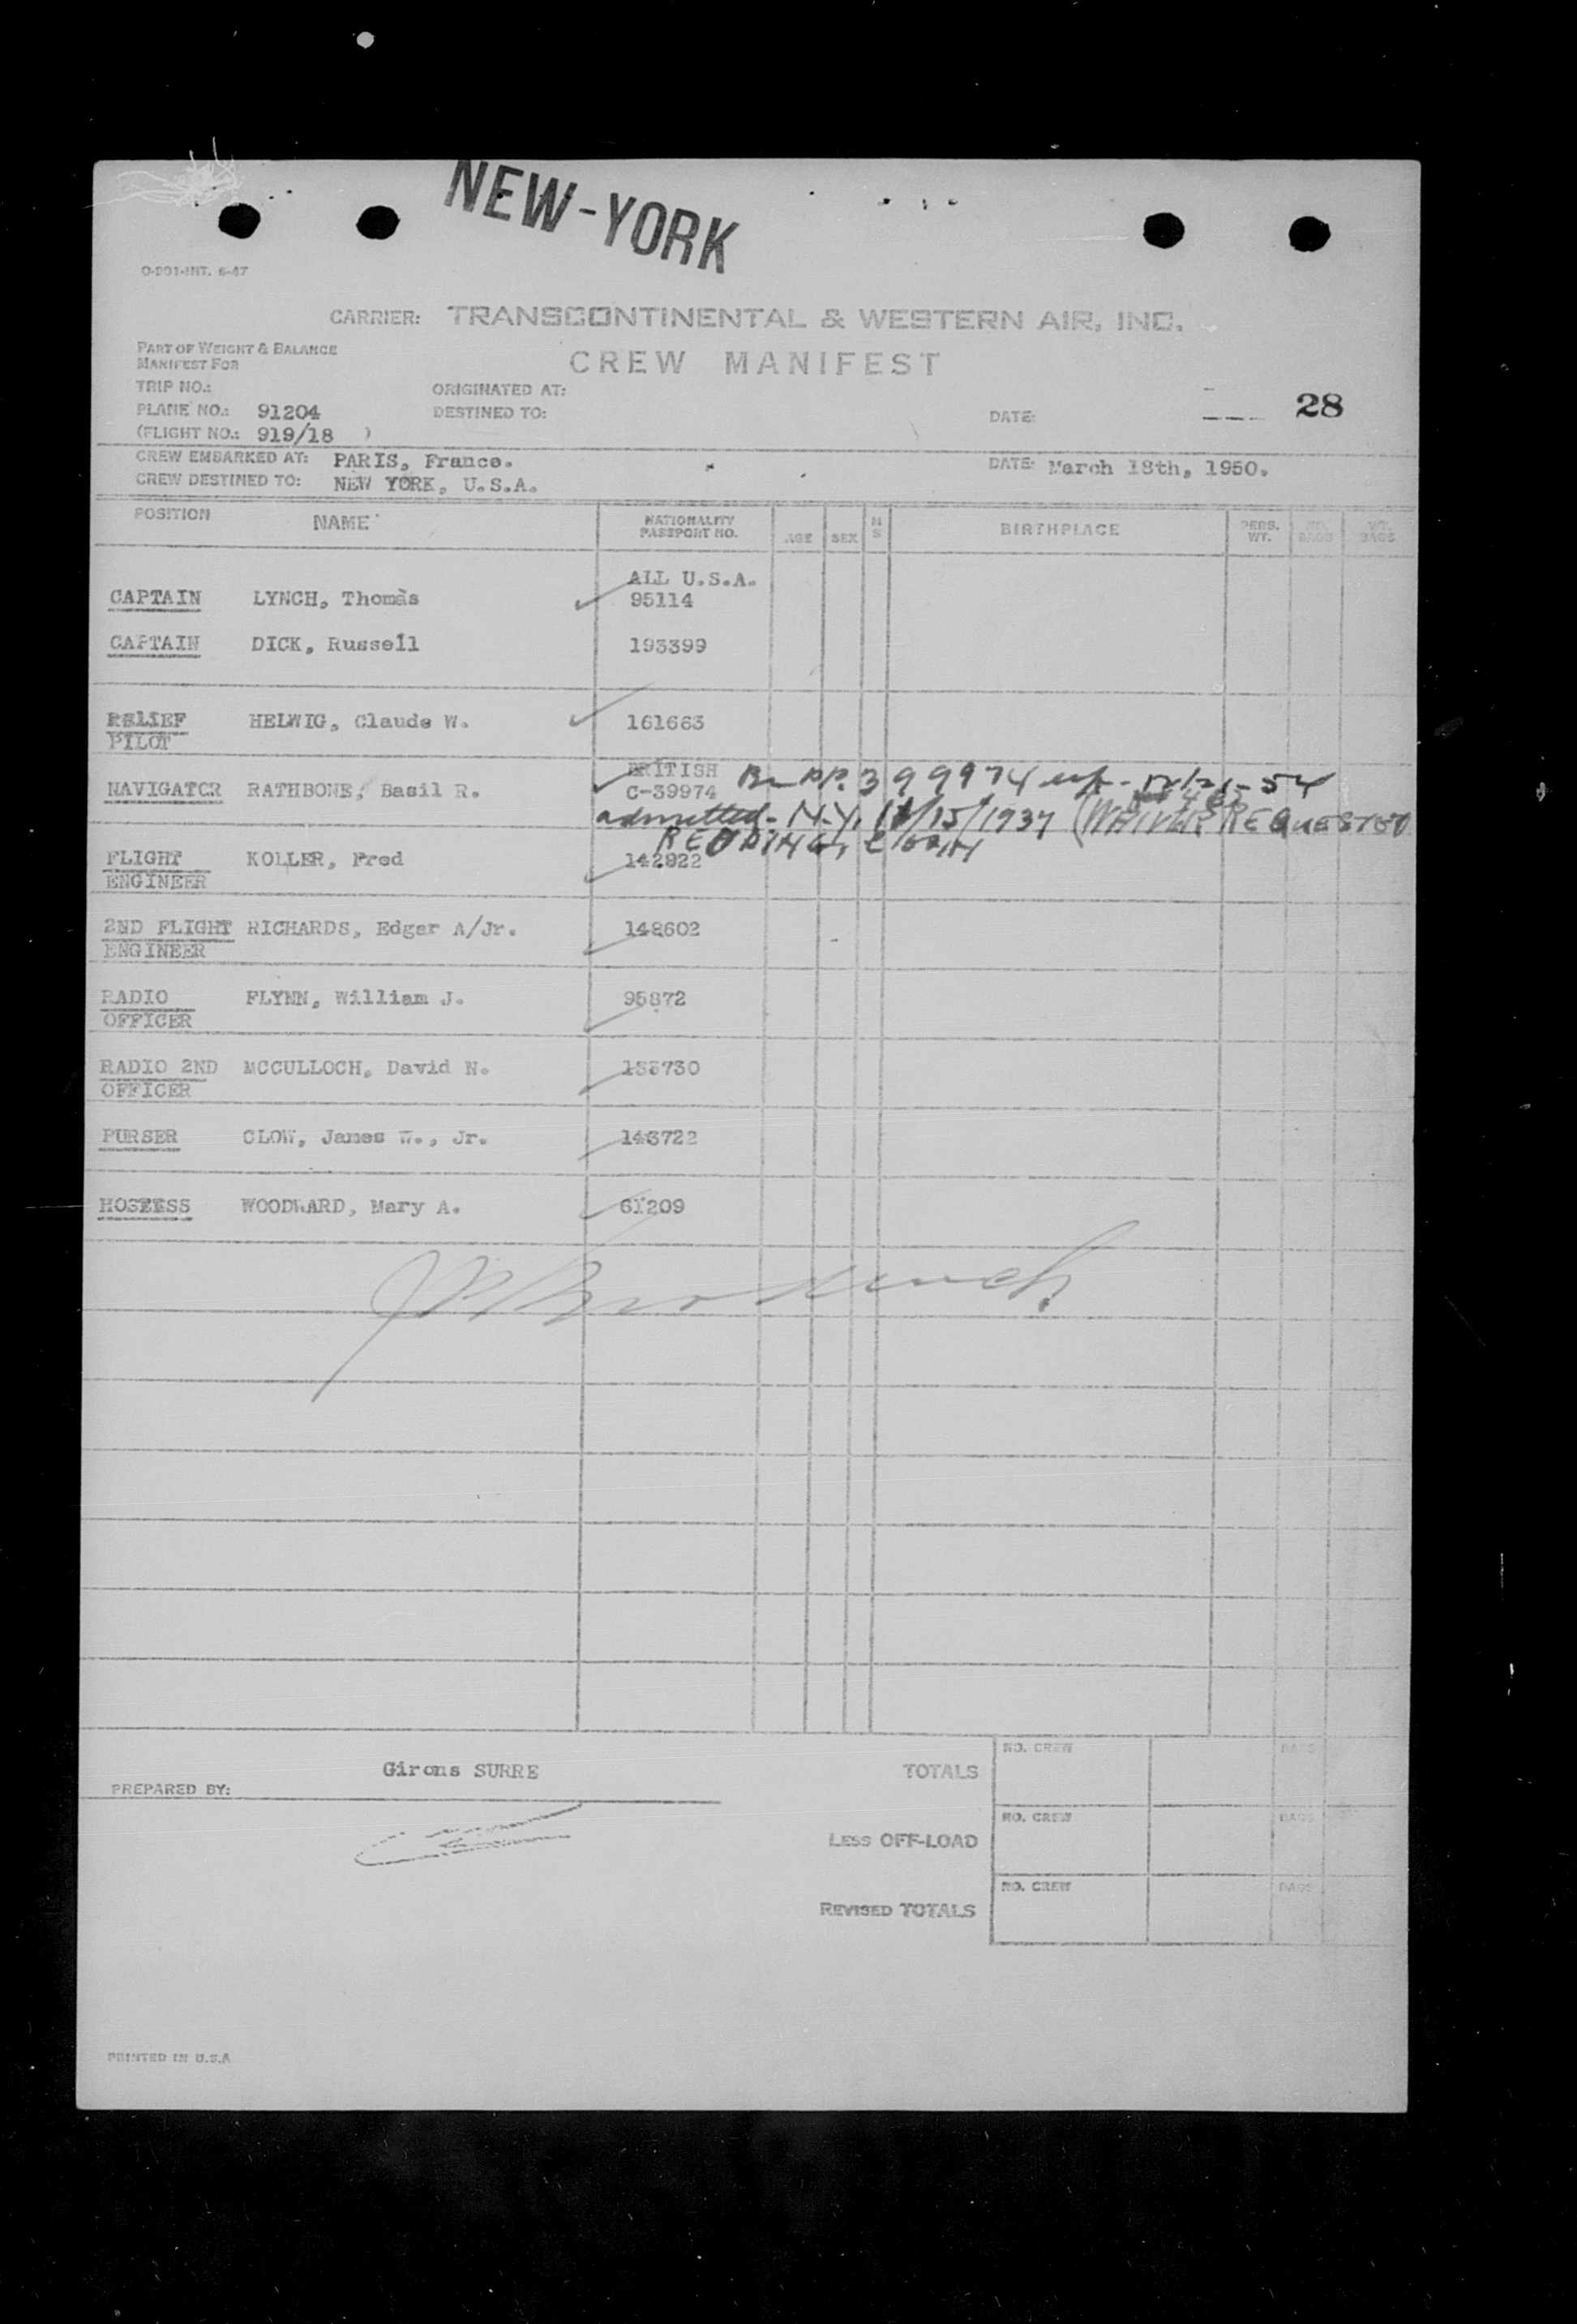 NEW-YORK
O-901-INT. 6-47
CARRIER: TRANSCONTINENTAL & WESTERN AIR, INC.
PART OF WEIGHT & BALANCE
MANIFEST FOR
CREW MANIFEST
TRIP NO.: ORIGINATED AT:
PLANE NO.: 91204 DESTINED TO: DATE: 28
(FLIGHT NO.: 919/18 )
CREW EMBARKED AT: PARIS, France. DATE: March 18th, 1950.
CREW DESTINED TO: NEW YORK, U.S.A.
POSITION NAME NATIONALITY PASSPORT NO. AGE SEX M S BIRTHPLACE PERS. WT. NO. BAGS WT. BAGS
ALL U.S.A.
CAPTAIN LYNCH, Thomas 95114
CAPTAIN DICK, Russell 193399
RELIEF PILOT HELWIG, Claude W. 161663
BRITISH Br PP. 399974 54
NAVIGATOR RATHBONE, Basil R. C-39974
admitted - N.Y. 15/1937 (WAIVER REQUESTED
FLIGHT ENGINEER KOLLER, Fred 142822
2ND FLIGHT ENGINEER RICHARDS, Edgar A/Jr. 148602
RADIO OFFICER FLYNN, William J. 95872
RADIO 2ND OFFICER MCCULLOCH, David N. 135730
PURSER CLOW, James W., Jr. 143722
HOSTESS WOODWARD, Mary A. 61209
Girons SURRE
PREPARED BY:
TOTALS NO. CREW BAGS
LESS OFF-LOAD NO. CREW BAGS
REVISED TOTALS NO. CREW BAGS
PRINTED IN U.S.A